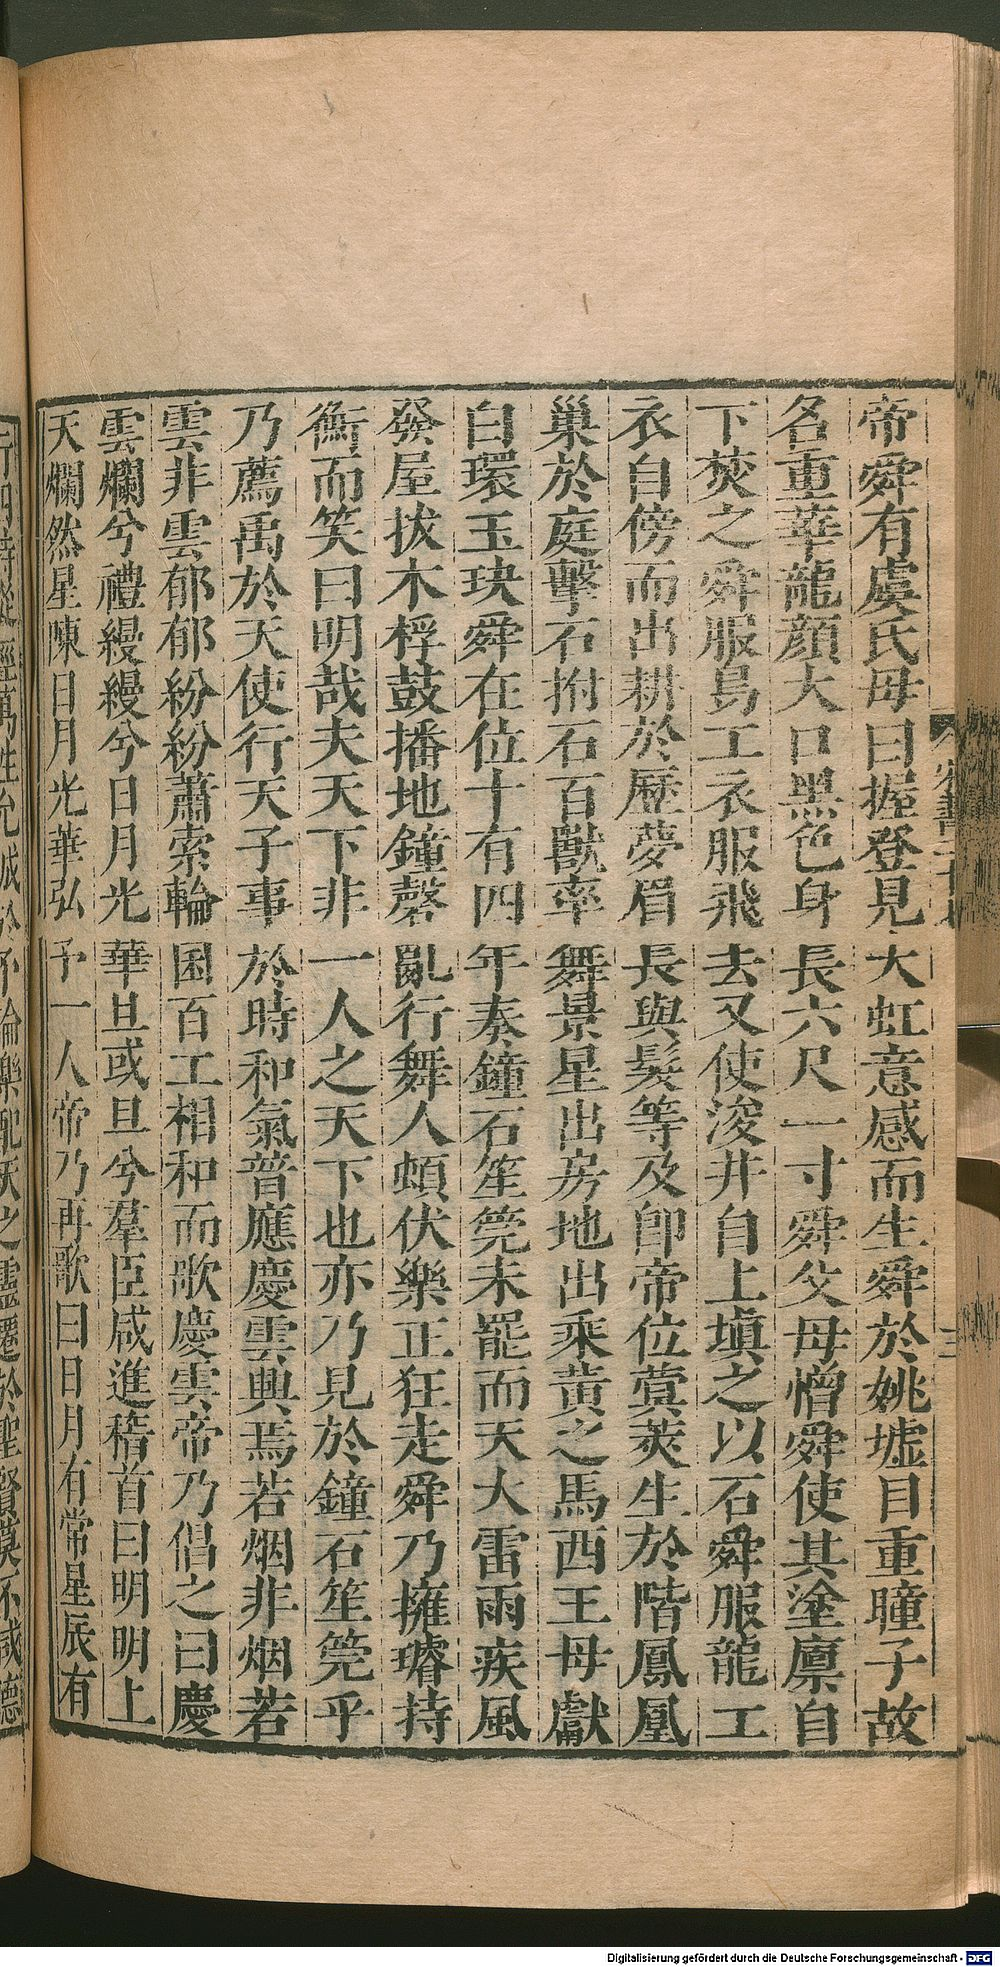 帝舜有虞氏母曰握登見大虹意感而生舜於姚墟目重瞳子故
名重華龍顔大口黑色身長六尺一寸舜父母憎舜使其塗廩自
下焚之舜服鳥工衣服飛去又使浚井自上塡之以石舜服龍工
衣自傍而出耕於歷夢眉長與髮等及卽帝位蓂莢生於階鳳凰
巢於庭擊石拊石百獸率舞景星出房地出乘黃之馬西王母獻
白環玉玦舜在位十有四年奏鐘石笙筦未罷而天大雷雨疾風
發屋拔木桴鼓播地鐘磬亂行舞人頓伏樂正狂走舜乃擁璿持
衡而笑曰明哉夫天下非一人之天下也亦乃見於鐘石笙筦乎
乃薦禹於天使行天子事於時和氣普應慶雲興焉若烟非烟若
雲非雲郁郁紛紛蕭索輪囷百工相和而歌慶雲帝乃倡之曰慶
雲爛兮禮縵縵兮日月光華旦或旦兮羣臣咸進稽首曰明明上
天爛然星陳日月光華弘予一人帝乃再歌曰日月有常星辰有
行四時從經萬姓允誠於予論樂配天之靈遷於聖賢莫不咸德
宋書二十七
三
Digitalisierung gefördert durch die Deutsche Forschungsgemeinschaft - DFG